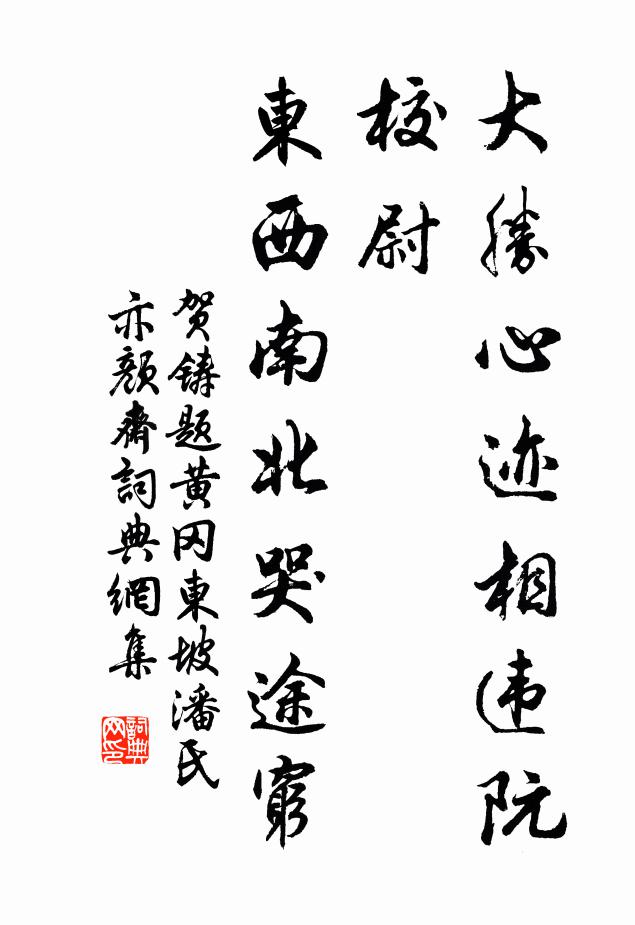 大勝心迹相违阮
校尉
東西南北哭途窮
贺鑄题黄冈東坡潘氏
亦颜齋詞典網集
詞典
网印